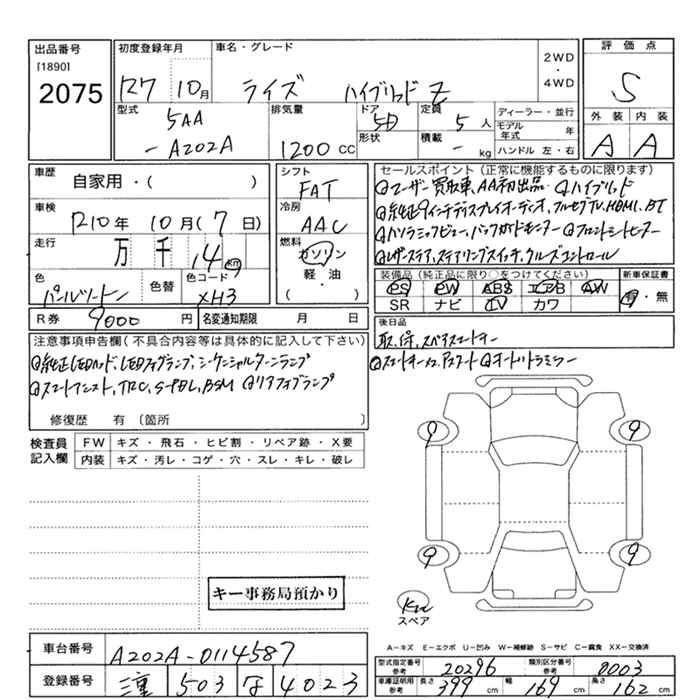 出品番号
[1890]
2075
初度登録年月
R7 10月
車名・グレード
ライズ ハイブリッド Z
2WD
・
4WD
評価点
S
外装 内装
A A
型式
5AA
-A202A
排気量
1200 CC
ドア
5D
形状
定員
5 人
積載
- kg
ディーラー・並行
モデル年式 年
ハンドル 左・右
車歴
自家用・( )
車検
R10年 10月(7日)
走行
万 千 14 km
色
パールツートン
色替
色コード
XH3
シフト
FAT
冷房
AAC
燃料
ガソリン
軽・油
( )
R券 9000 円
名変通知期限 月 日
セールスポイント(正常に機能するものに限ります)
ユーザー買取車、AA初出品 ハイブリッド
純正9インチディスプレイオーディオ、フルセグTV、HDMI、BT
パノラミックビュー、バックガイドモニター フロントシートヒーター
レザーステア、ステアリングスイッチ、クルーズコントロール
装備品(純正品に限り○をつけてください)
PS PW ABS エアB AW
SR ナビ TV カワ
新車保証書
有・無
後日品
取、保、スペアスマートキー
スマートキー×2、プッシュスタート オートリトラミラー
注意事項申告欄(不具合内容等は具体的に記入して下さい)
純正LEDヘッド、LEDフォグランプ、シーケンシャルターンランプ
スマートアシスト、TRC、S-PBL、BSM リアフォグランプ
修復歴 有〔箇所 〕
検査員記入欄
FW キズ・飛石・ヒビ割・リペア跡・X要
内装 キズ・汚レ・コゲ・穴・スレ・キレ・破レ
9 9
9 9
スペア
キー事務局預かり
A-キズ E-エクボ U-凹み W-補修跡 S-サビ C-腐食 XX-交換済
車台番号 A202A-0114587
登録番号 三重 503 な 4023
型式指定番号 参考 20296
類別区分番号 参考 0003
車庫証明用参考 長さ 399 cm 幅 169 cm 高さ 162 cm